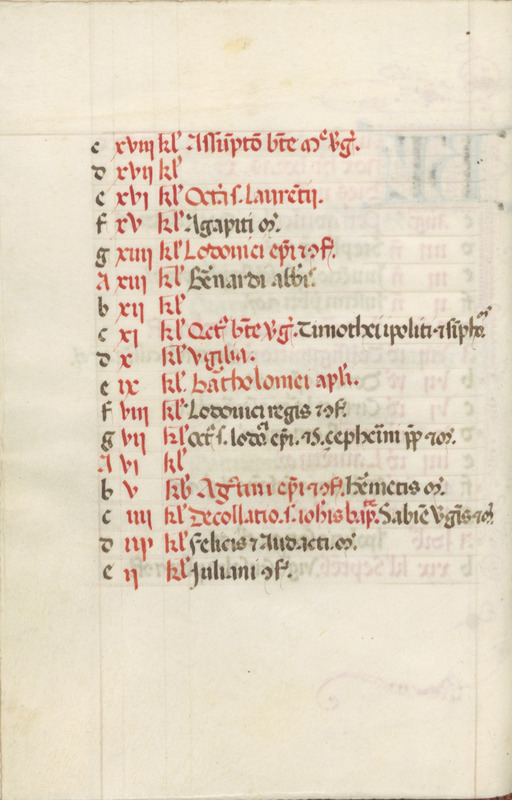 c xviii kl' Assūptō bt̄e m̄e v̄g̃.
d xvii kl'
e xvi kl' Octā s. laurētii.
f xv kl' Agapiti m̃.
g xiiii kl' Lodouici ep̄i ⁊ ↄf̃.
A xiii kl' B̄enardi abb̄is.
b xii kl'
c xi kl' Oct̃ bt̄e v̄g̃. Timothei ipoliti ⁊ siph'
d x kl' vigilia.
e ix kl'. bartholomei apl̄i.
f viii kl' Lodouici regis ⁊ ↄf̃.
g vii kl' Oct̃ s. lodoᵃ ep̄i. ⁊ s. cepherini pp̄ ⁊ m̃.
A vi kl'
b v kl' Agustini ep̄i ⁊ ↄf̃. hermetis m̃.
c iiii kl' Decollatio. s. ioh̄is bapᵗ. Sabīe v̄gīs ⁊ m̃.
d iii kl' felicis ⁊ Audacti. m̃.
e ii kl' Juliani ↄf̃.